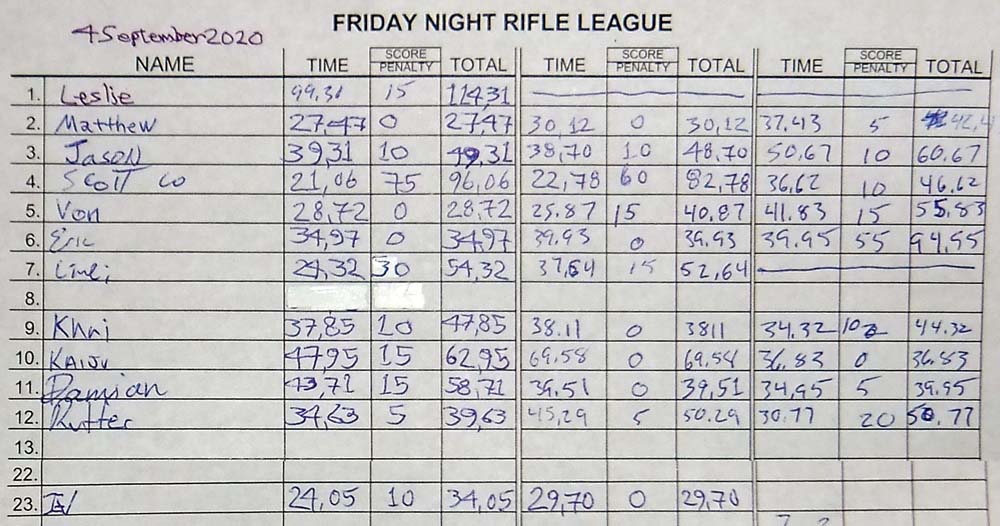 4 September 2020
FRIDAY NIGHT RIFLE LEAGUE
NAME TIME SCORE PENALTY TOTAL TIME SCORE PENALTY TOTAL TIME SCORE PENALTY TOTAL
1. Leslie 99,31 15 114,31
2. Matthew 27,47 0 27,47 30,12 0 30,12 37.43 5
3. Jason 39,31 10 49,31 38,70 10 48,70 50,67 10 60.67
4. Scott co 21,06 75 96,06 22,78 60 82,78 36,62 10 46.62
5. Von 28,72 0 28,72 25.87 15 40,87 41.83 15
6. Eric 34,97 0 34,97 39.93 0 39.93 39.95 55 94,95
7. 24,32 30 54,32 37,64 15 52,64
8.
9. Khai 37,85 10 47,85 38.11 0 3811 34.32 10 44.32
10. KAIJU 47,95 15 62,95 69.58 0 69.58 36,83 0 36.83
11. Damian 43,71 15 58,71 39,51 0 39,51 34,95 5 39.95
12. Rutter 34,63 5 39,63 45,29 5 50.29 30.77 20 50,77
13.
22.
23. 24,05 10 34,05 29,70 0 29,70